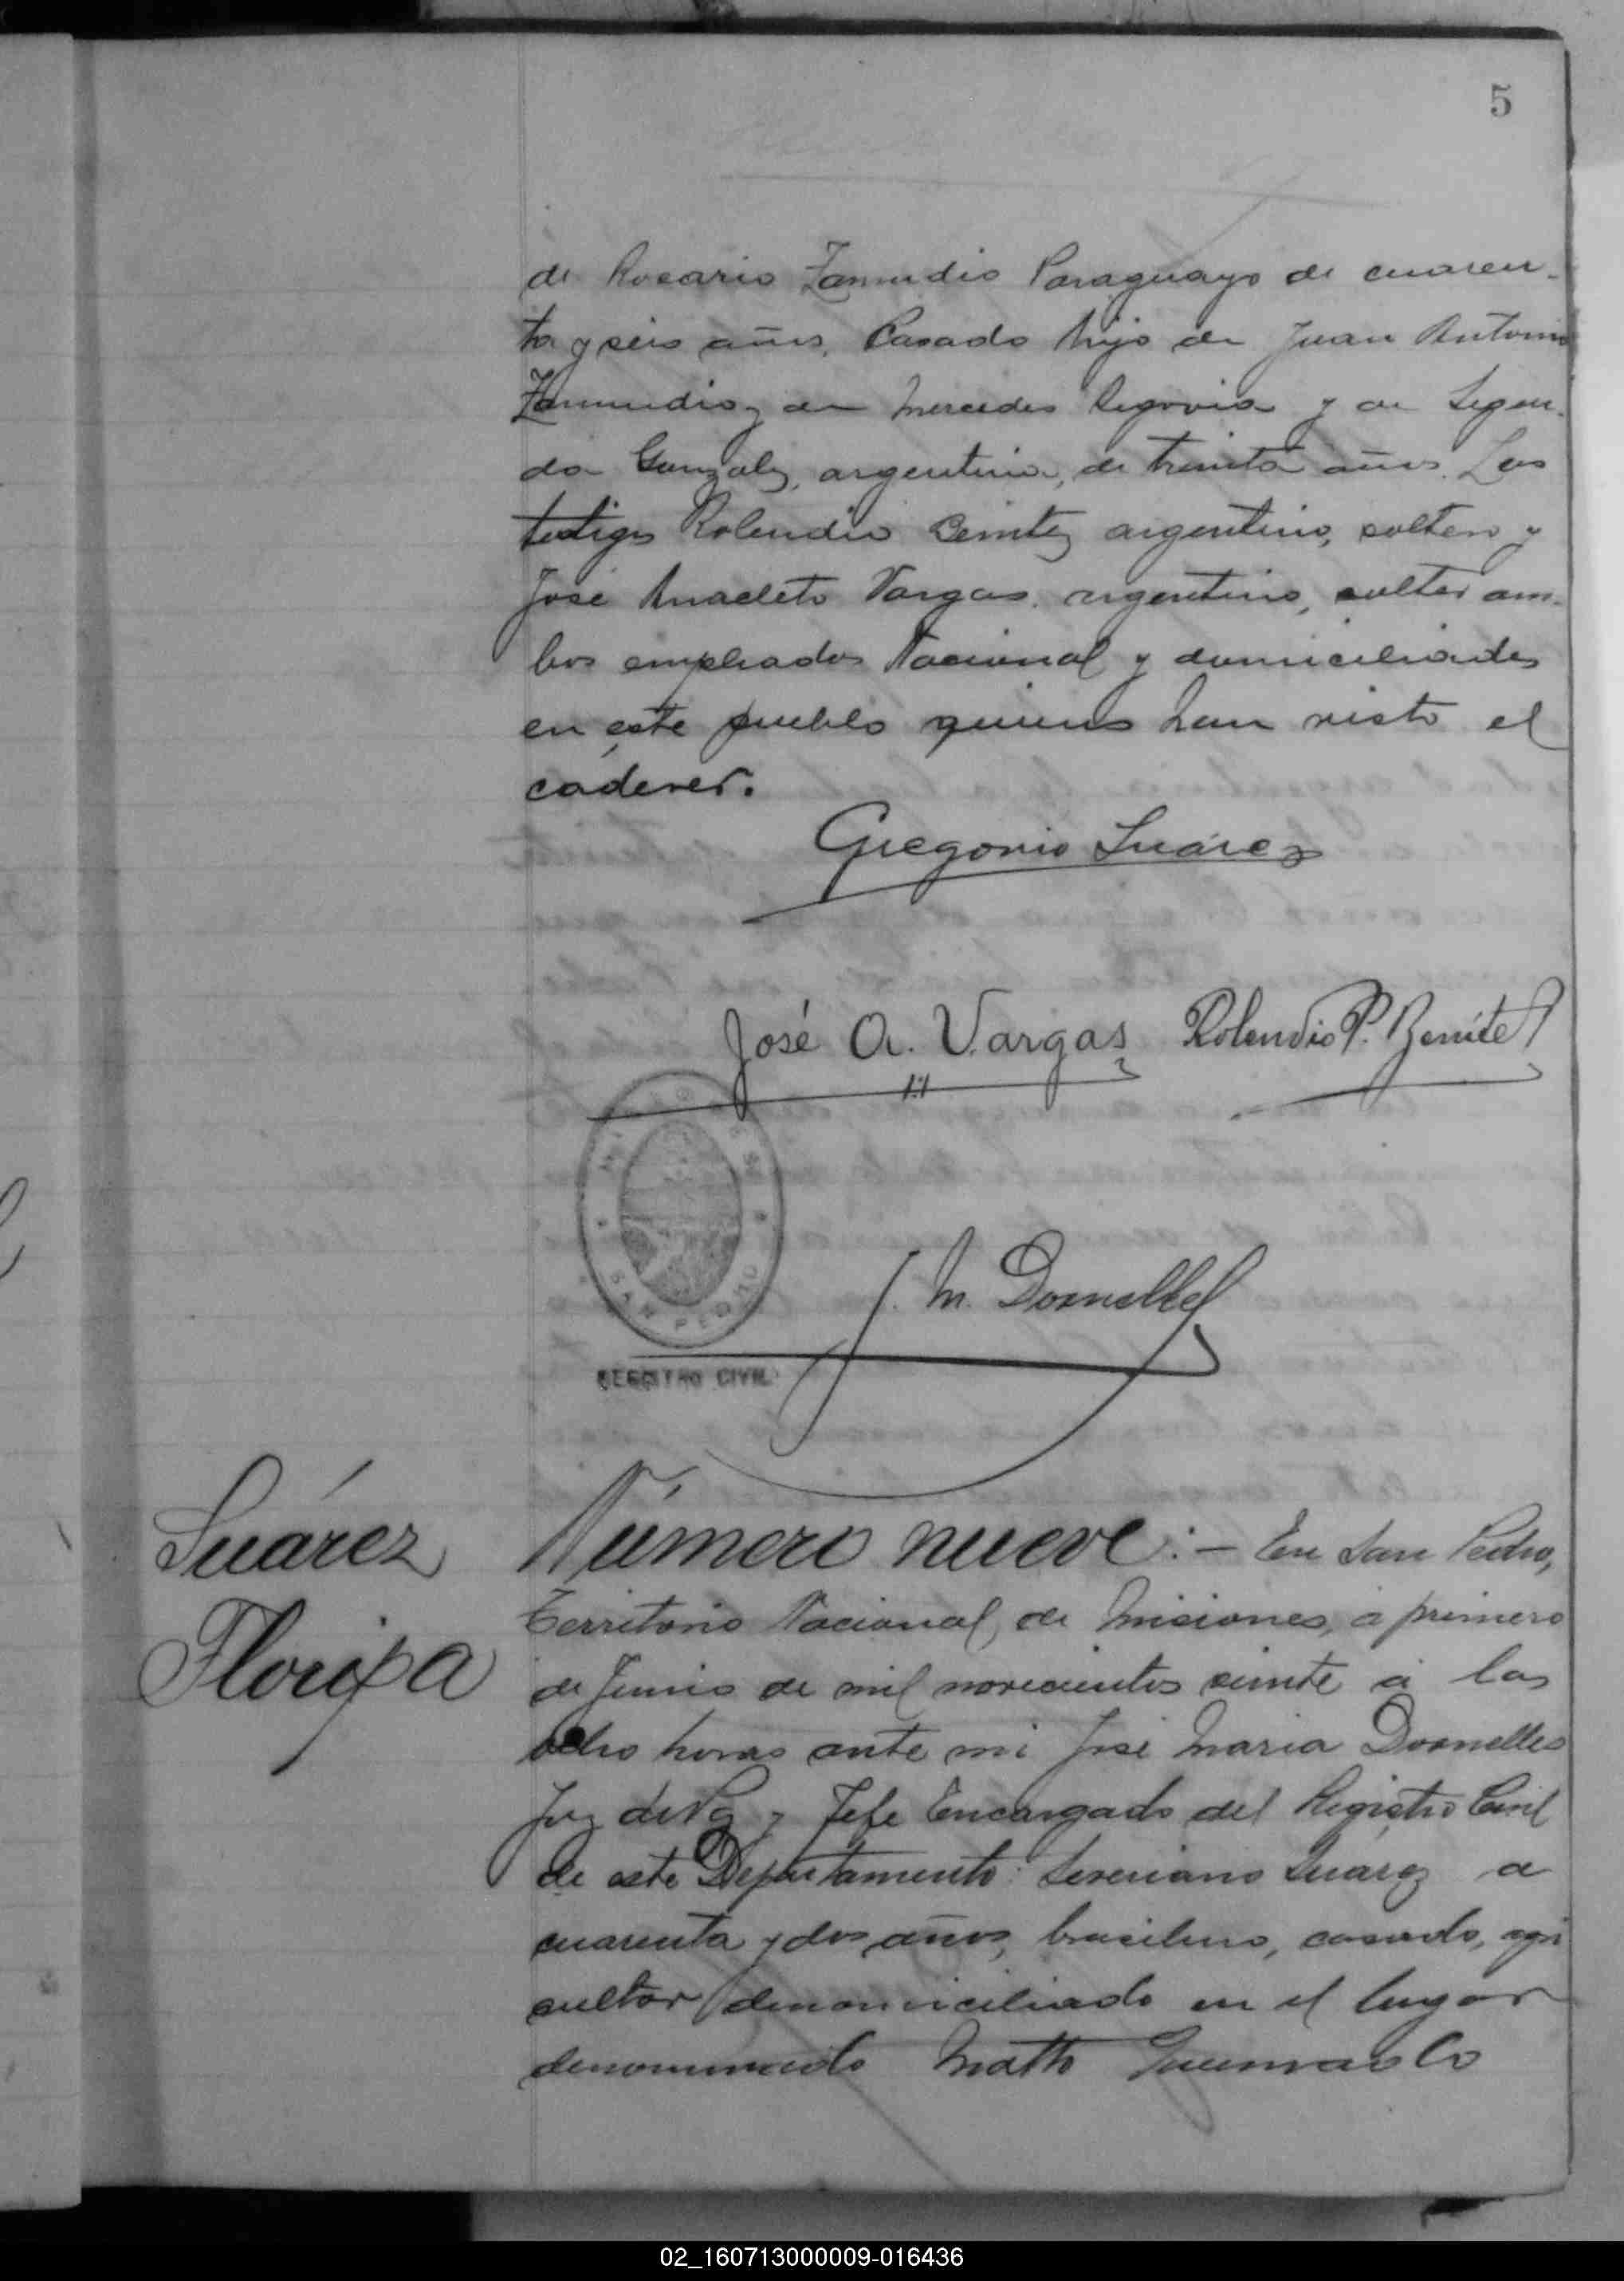 5
de Rosario Zamudio Paraguayo de cuaren-
ta y seis años, Casado hijo de Juan Antonio
Zamudio y de Mercedes Segovia y de Segun-
da Gonzalez, argentina, de treinta años. Los
testigos Rolendio Benitez argentino, soltero y
José Anacleto Vargas. argentino, solter am-
bos empleados Nacional y domiciliados
en este pueblo quienes han visto el
cadever.
Gregorio Suárez
José A. Vargas Rolendio P. Benítez
MISIONES
SAN PEDRO
REGISTRO CIVIL
J. M. Dornelles
Suárez
Floripa
Número nueve:- En San Pedro,
Territorio Nacional de Misiones, a primero
de Junio de mil novecientos veinte á las
ocho horas ante mi José Maria Dornelles
Juez de Paz y Jefe Encargado del Registro Civil
de este Departamento: Severiano Suárez a
cuarenta y dos años, brasilero, casado, agri
cultor domiciliado en el lugar
denominado Matto
02_160713000009-016436